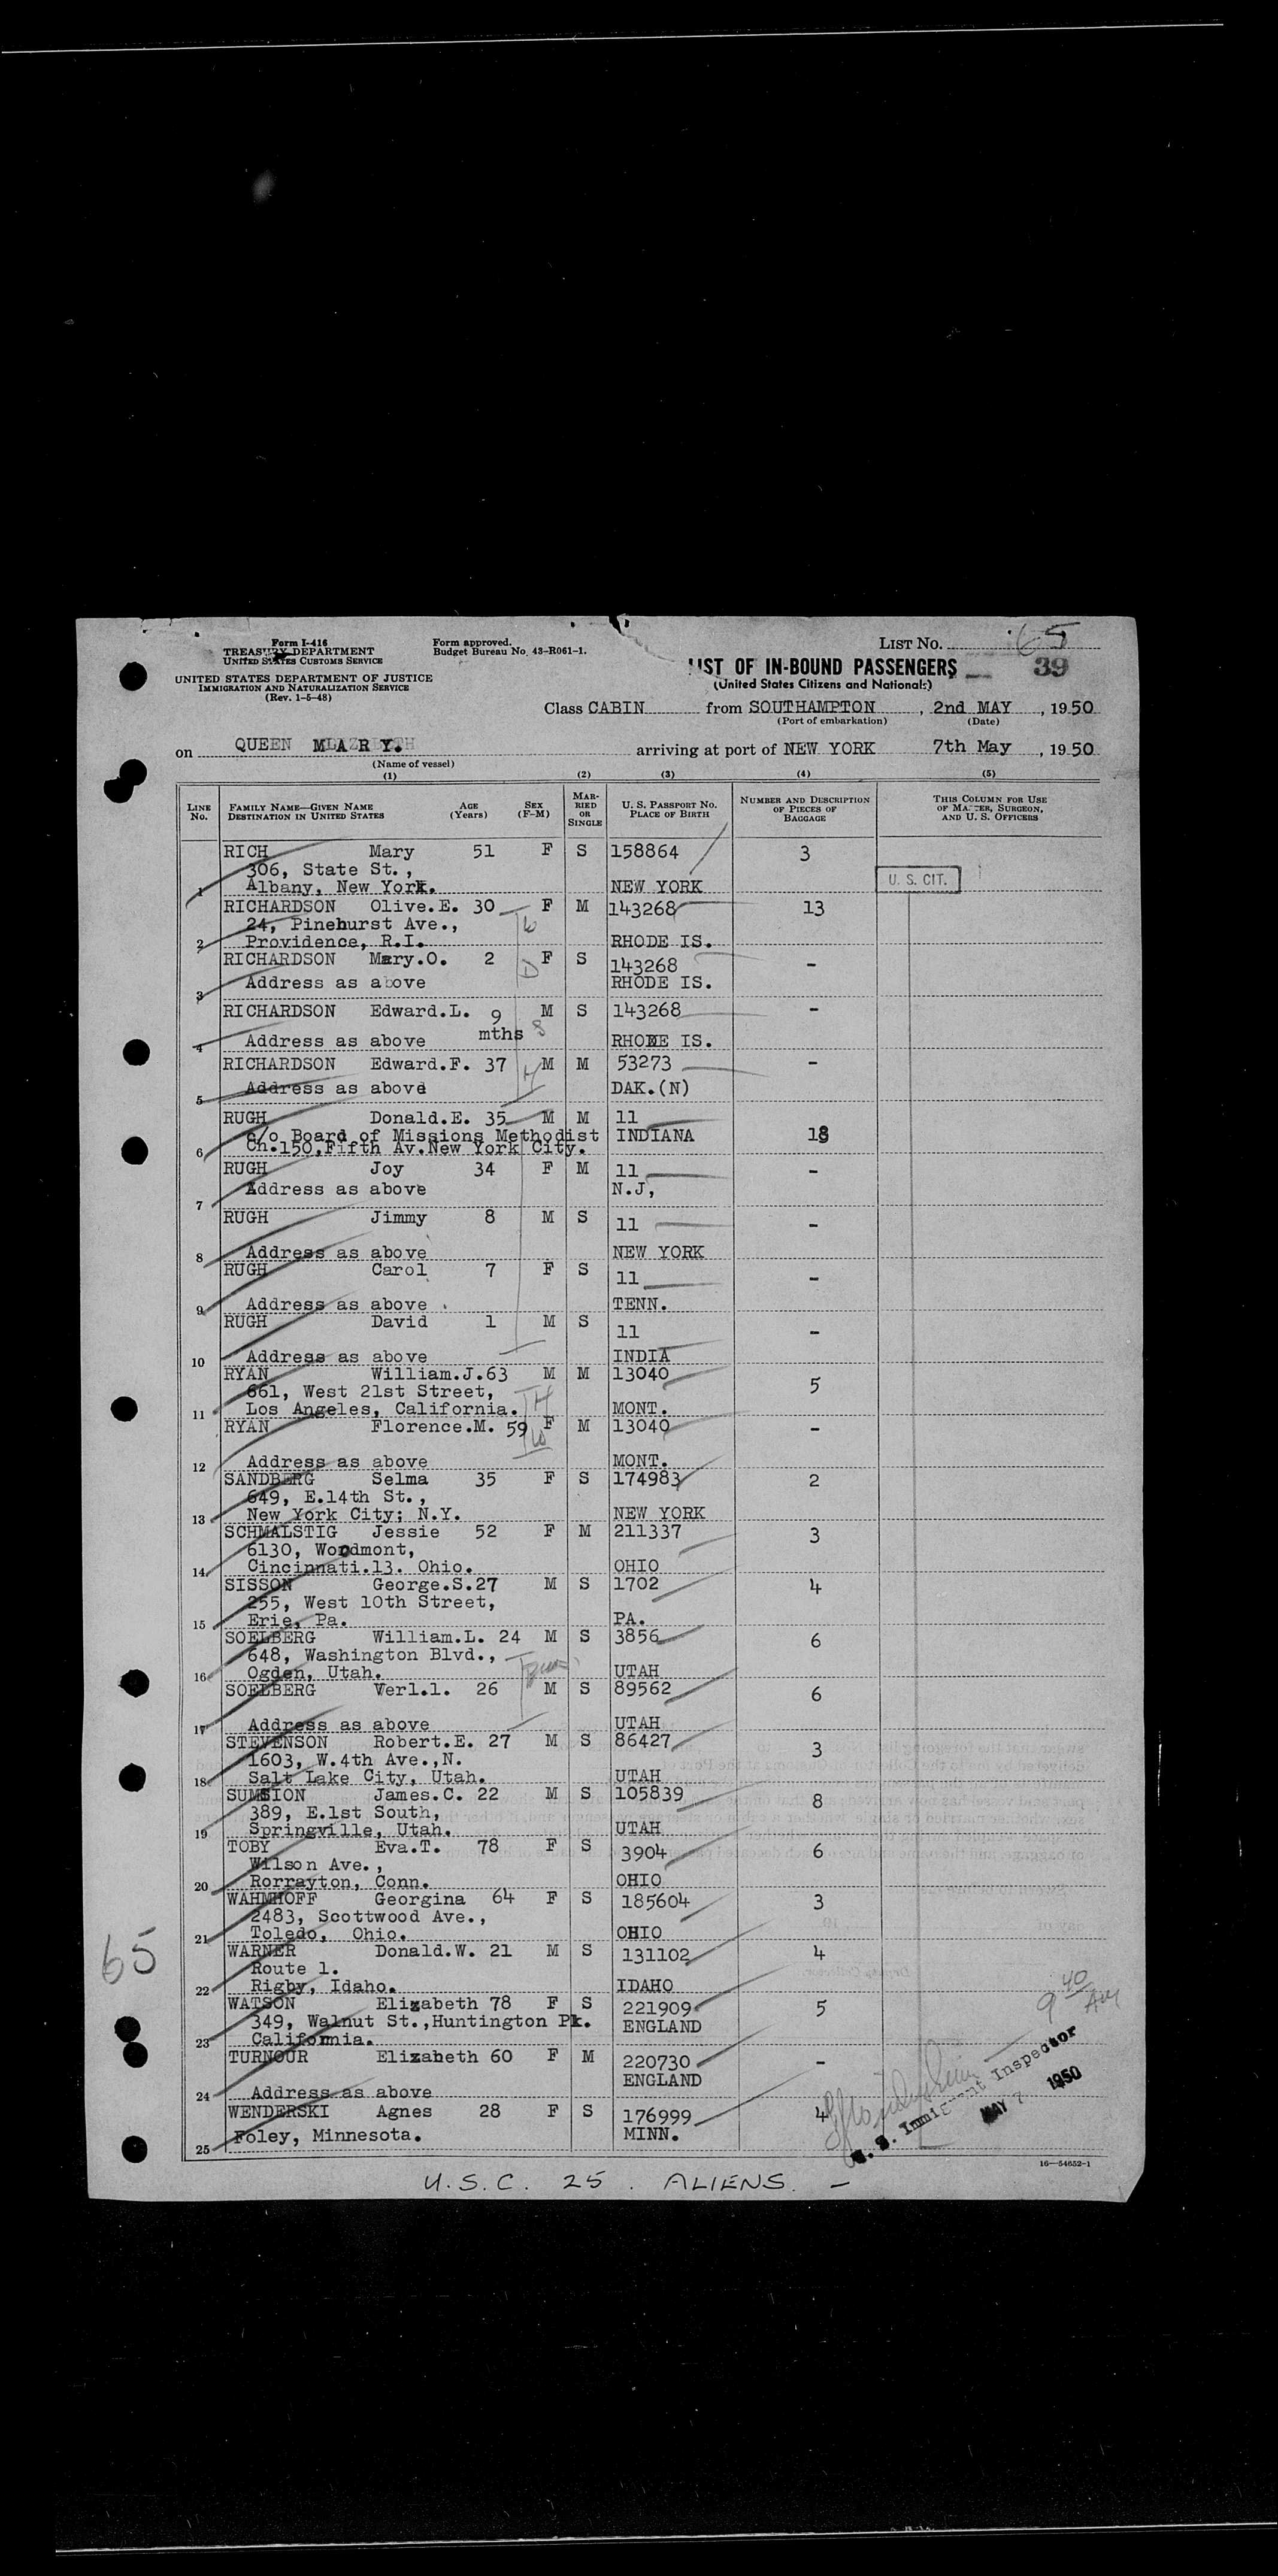 Form I-416
TREASURY DEPARTMENT
UNITED STATES CUSTOMS SERVICE
UNITED STATES DEPARTMENT OF JUSTICE
IMMIGRATION AND NATURALIZATION SERVICE
(Rev. 1-5-48)
Form approved.
Budget Bureau No. 43-R061-1.
LIST No. 65
39
LIST OF IN-BOUND PASSENGERS
(United States Citizens and Nationals)
Class CABIN from SOUTHAMPTON, 2nd MAY, 1950
(Port of embarkation) (Date)
on QUEEN MARY. arriving at port of NEW YORK 7th May, 1950
(Name of vessel)
(1) (2) (3) (4) (5)
LINE No. FAMILY NAME—GIVEN NAME DESTINATION IN UNITED STATES AGE (Years) SEX (F-M) MARRIED OR SINGLE U. S. PASSPORT NO. PLACE OF BIRTH NUMBER AND DESCRIPTION OF PIECES OF BAGGAGE THIS COLUMN FOR USE OF MASTER, SURGEON, AND U. S. OFFICERS
RICH Mary 51 F S 158864 3
306, State St.,
1 Albany, New York. NEW YORK U. S. CIT.
RICHARDSON Olive.E. 30 F M 143268 13
24, Pinehurst Ave.,
2 Providence, R.I. RHODE IS.
RICHARDSON Mary.O. 2 F S 143268 -
3 Address as above RHODE IS.
RICHARDSON Edward.L. 9 mths M S 143268 -
4 Address as above RHODE IS.
RICHARDSON Edward.F. 37 M M 53273 -
5 Address as above DAK.(N)
RUGH Donald.E. 35 M M 11
c/o Board of Missions Methodist INDIANA 18
6 Ch.150,Fifth Av.New York City.
RUGH Joy 34 F M 11 -
7 Address as above N.J,
RUGH Jimmy 8 M S 11 -
8 Address as above NEW YORK
RUGH Carol 7 F S 11 -
9 Address as above . TENN.
RUGH David 1 M S 11 -
10 Address as above INDIA
RYAN William.J.63 M M 13040 5
661, West 21st Street,
11 Los Angeles, California. MONT.
RYAN Florence.M. 59 F M 13040 -
12 Address as above MONT.
SANDBERG Selma 35 F S 174983 2
649, E.14th St.,
13 New York City; N.Y. NEW YORK
SCHMALSTIG Jessie 52 F M 211337 3
6130, Woodmont,
14 Cincinnati.13. Ohio. OHIO
SISSON George.S.27 M S 1702 4
255, West 10th Street,
15 Erie, Pa. PA.
SOELBERG William.L. 24 M S 3856 6
648, Washington Blvd.,
16 Ogden, Utah. UTAH
SOELBERG Verl.l. 26 M S 89562 6
17 Address as above UTAH
STEVENSON Robert.E. 27 M S 86427 3
1603, W.4th Ave.,N.
18 Salt Lake City, Utah. UTAH
SUMSION James.C. 22 M S 105839 8
389, E.1st South,
19 Springville, Utah. UTAH
TOBY Eva.T. 78 F S 3904 6
Wilson Ave.,
20 Rorrayton, Conn. OHIO
WAHMHOFF Georgina 64 F S 185604 3
2483, Scottwood Ave.,
21 Toledo, Ohio. OHIO
WARNER Donald.W. 21 M S 131102 4
Route 1.
22 Rigby, Idaho. IDAHO
WATSON Elizabeth 78 F S 221909 5
349, Walnut St.,Huntington Pk. ENGLAND
23 California.
TURNOUR Elizabeth 60 F M 220730 -
24 Address as above ENGLAND
WENDERSKI Agnes 28 F S 176999 4
25 Foley, Minnesota. MINN.
65
9 40 AM
U. S. Immigrant Inspector
MAY 7 1950
16—54652-1
U.S.C. 25. ALIENS. -